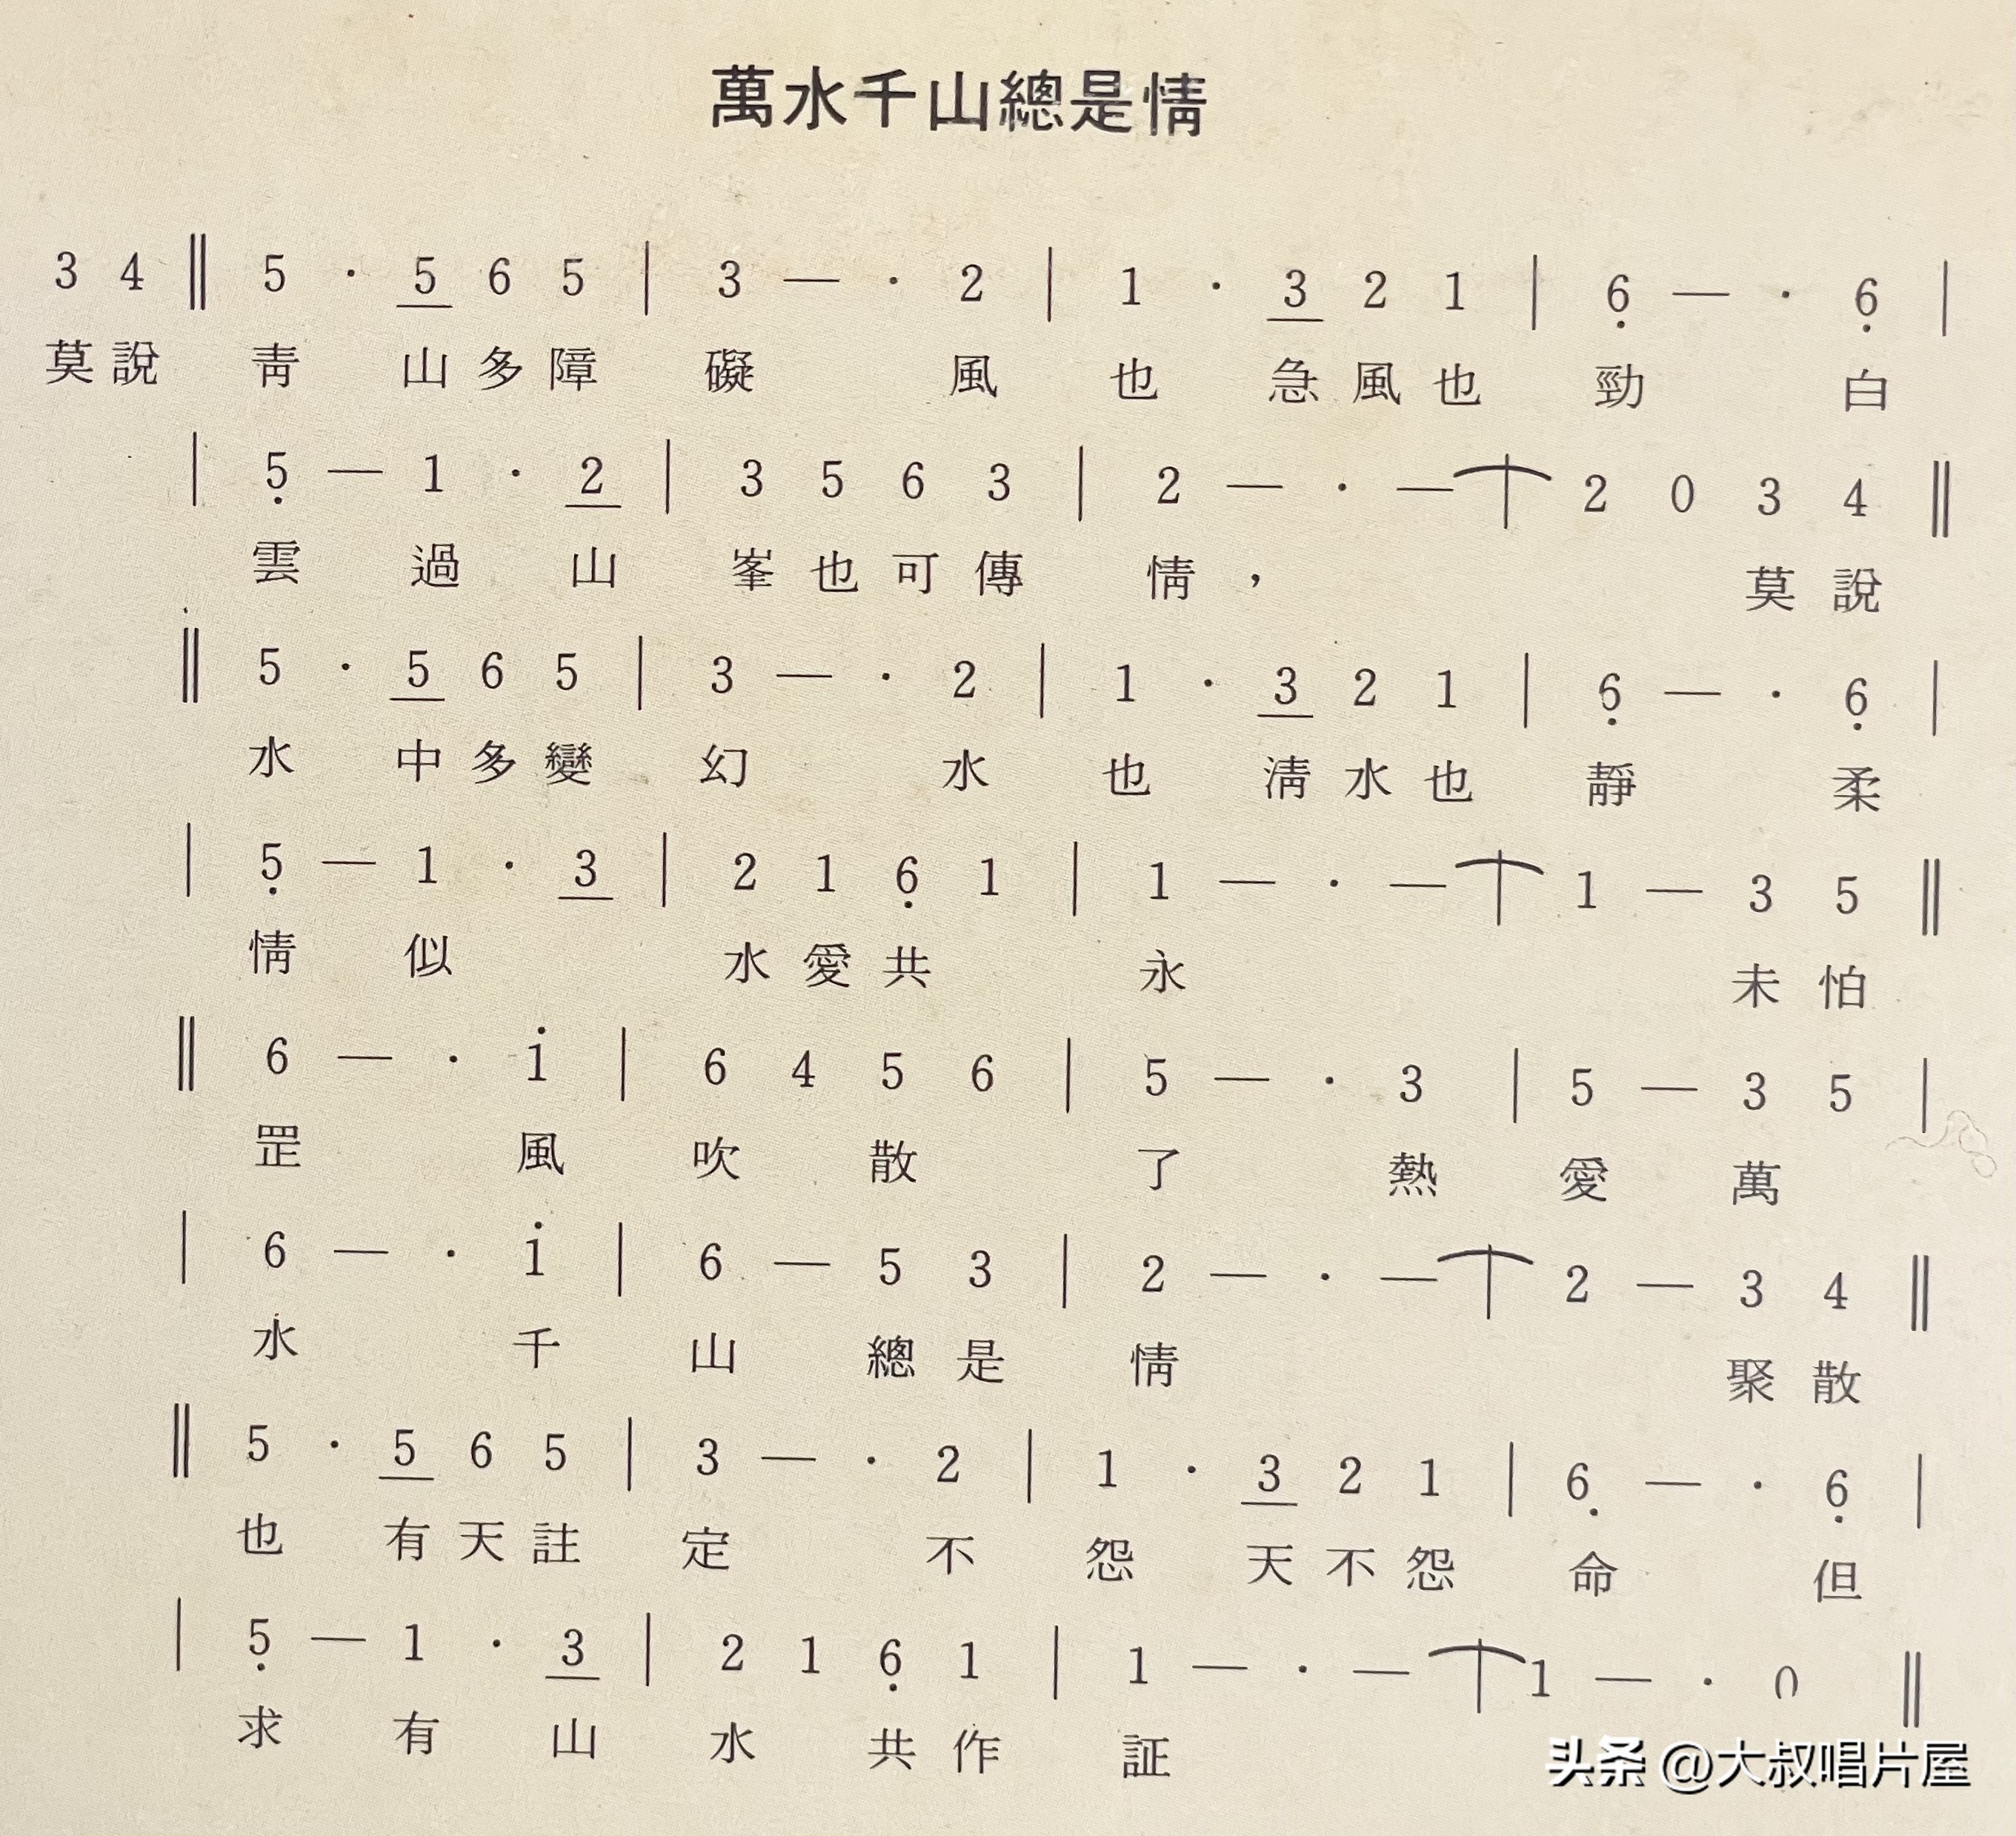 萬水千山總是情
3 4 ‖ 5 · 5 6 5 | 3 — · 2 | 1 · 3 2 1 | 6̣ — · 6̣ |
莫說 靑 山多障 礙 風 也 急風也 勁 白
| 5̣ — 1 · 2 | 3 5 6 3 | 2 — · — | 2 0 3 4 ‖
雲 過 山 峯也可傳 情， 莫說
‖ 5 · 5 6 5 | 3 — · 2 | 1 · 3 2 1 | 6̣ — · 6̣ |
水 中多變 幻 水 也 淸水也 靜 柔
| 5̣ — 1 · 3 | 2 1 6̣ 1 | 1 — · — | 1 — 3 5 ‖
情 似 水愛共 永 未怕
‖ 6 — · 1̇ | 6 4 5 6 | 5 — · 3 | 5 — 3 5 |
罡 風 吹 散 了 熱 愛 萬
| 6 — · 1̇ | 6 — 5 3 | 2 — · — | 2 — 3 4 ‖
水 千 山 總是 情 聚散
‖ 5 · 5 6 5 | 3 — · 2 | 1 · 3 2 1 | 6̣ — · 6̣ |
也 有天註 定 不 怨 天不怨 命 但
| 5̣ — 1 · 3 | 2 1 6̣ 1 | 1 — · — | 1 — · 0 ‖
求 有 山 水 共作 証
头条 @大叔唱片屋